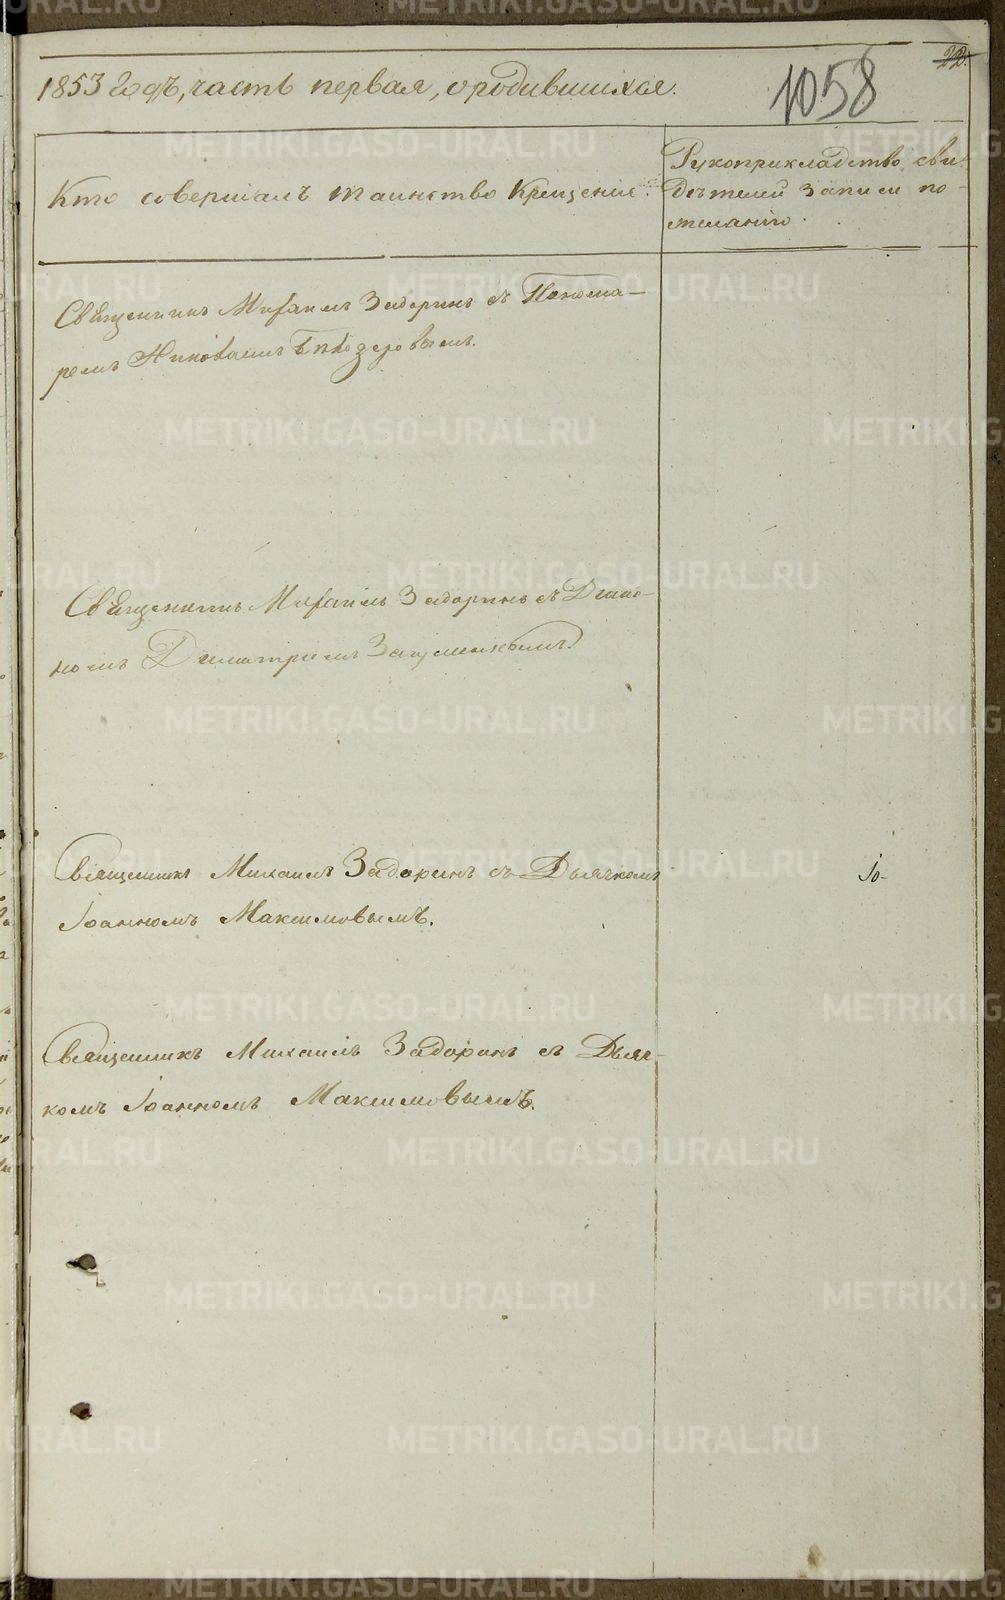 22.
1853 годъ, часть первая, о родившихся.
1058
Кто совершалъ таинство Крещенія.
Рукоприкладство сви-
дѣтелей записи по
желанію.
Священникъ Михаилъ Задоринъ съ Понома-
ремъ Николаемъ
Священникъ Михаилъ Задоринъ съ Діако-
номъ Димитріемъ
Священникъ Михаилъ Задоринъ съ Дьячкомъ
Іоанномъ Максимовымъ.
Священникъ Михаилъ Задоринъ съ Дьяч-
комъ Іоанномъ Максимовымъ.
METRIKI.GASO-URAL.RU